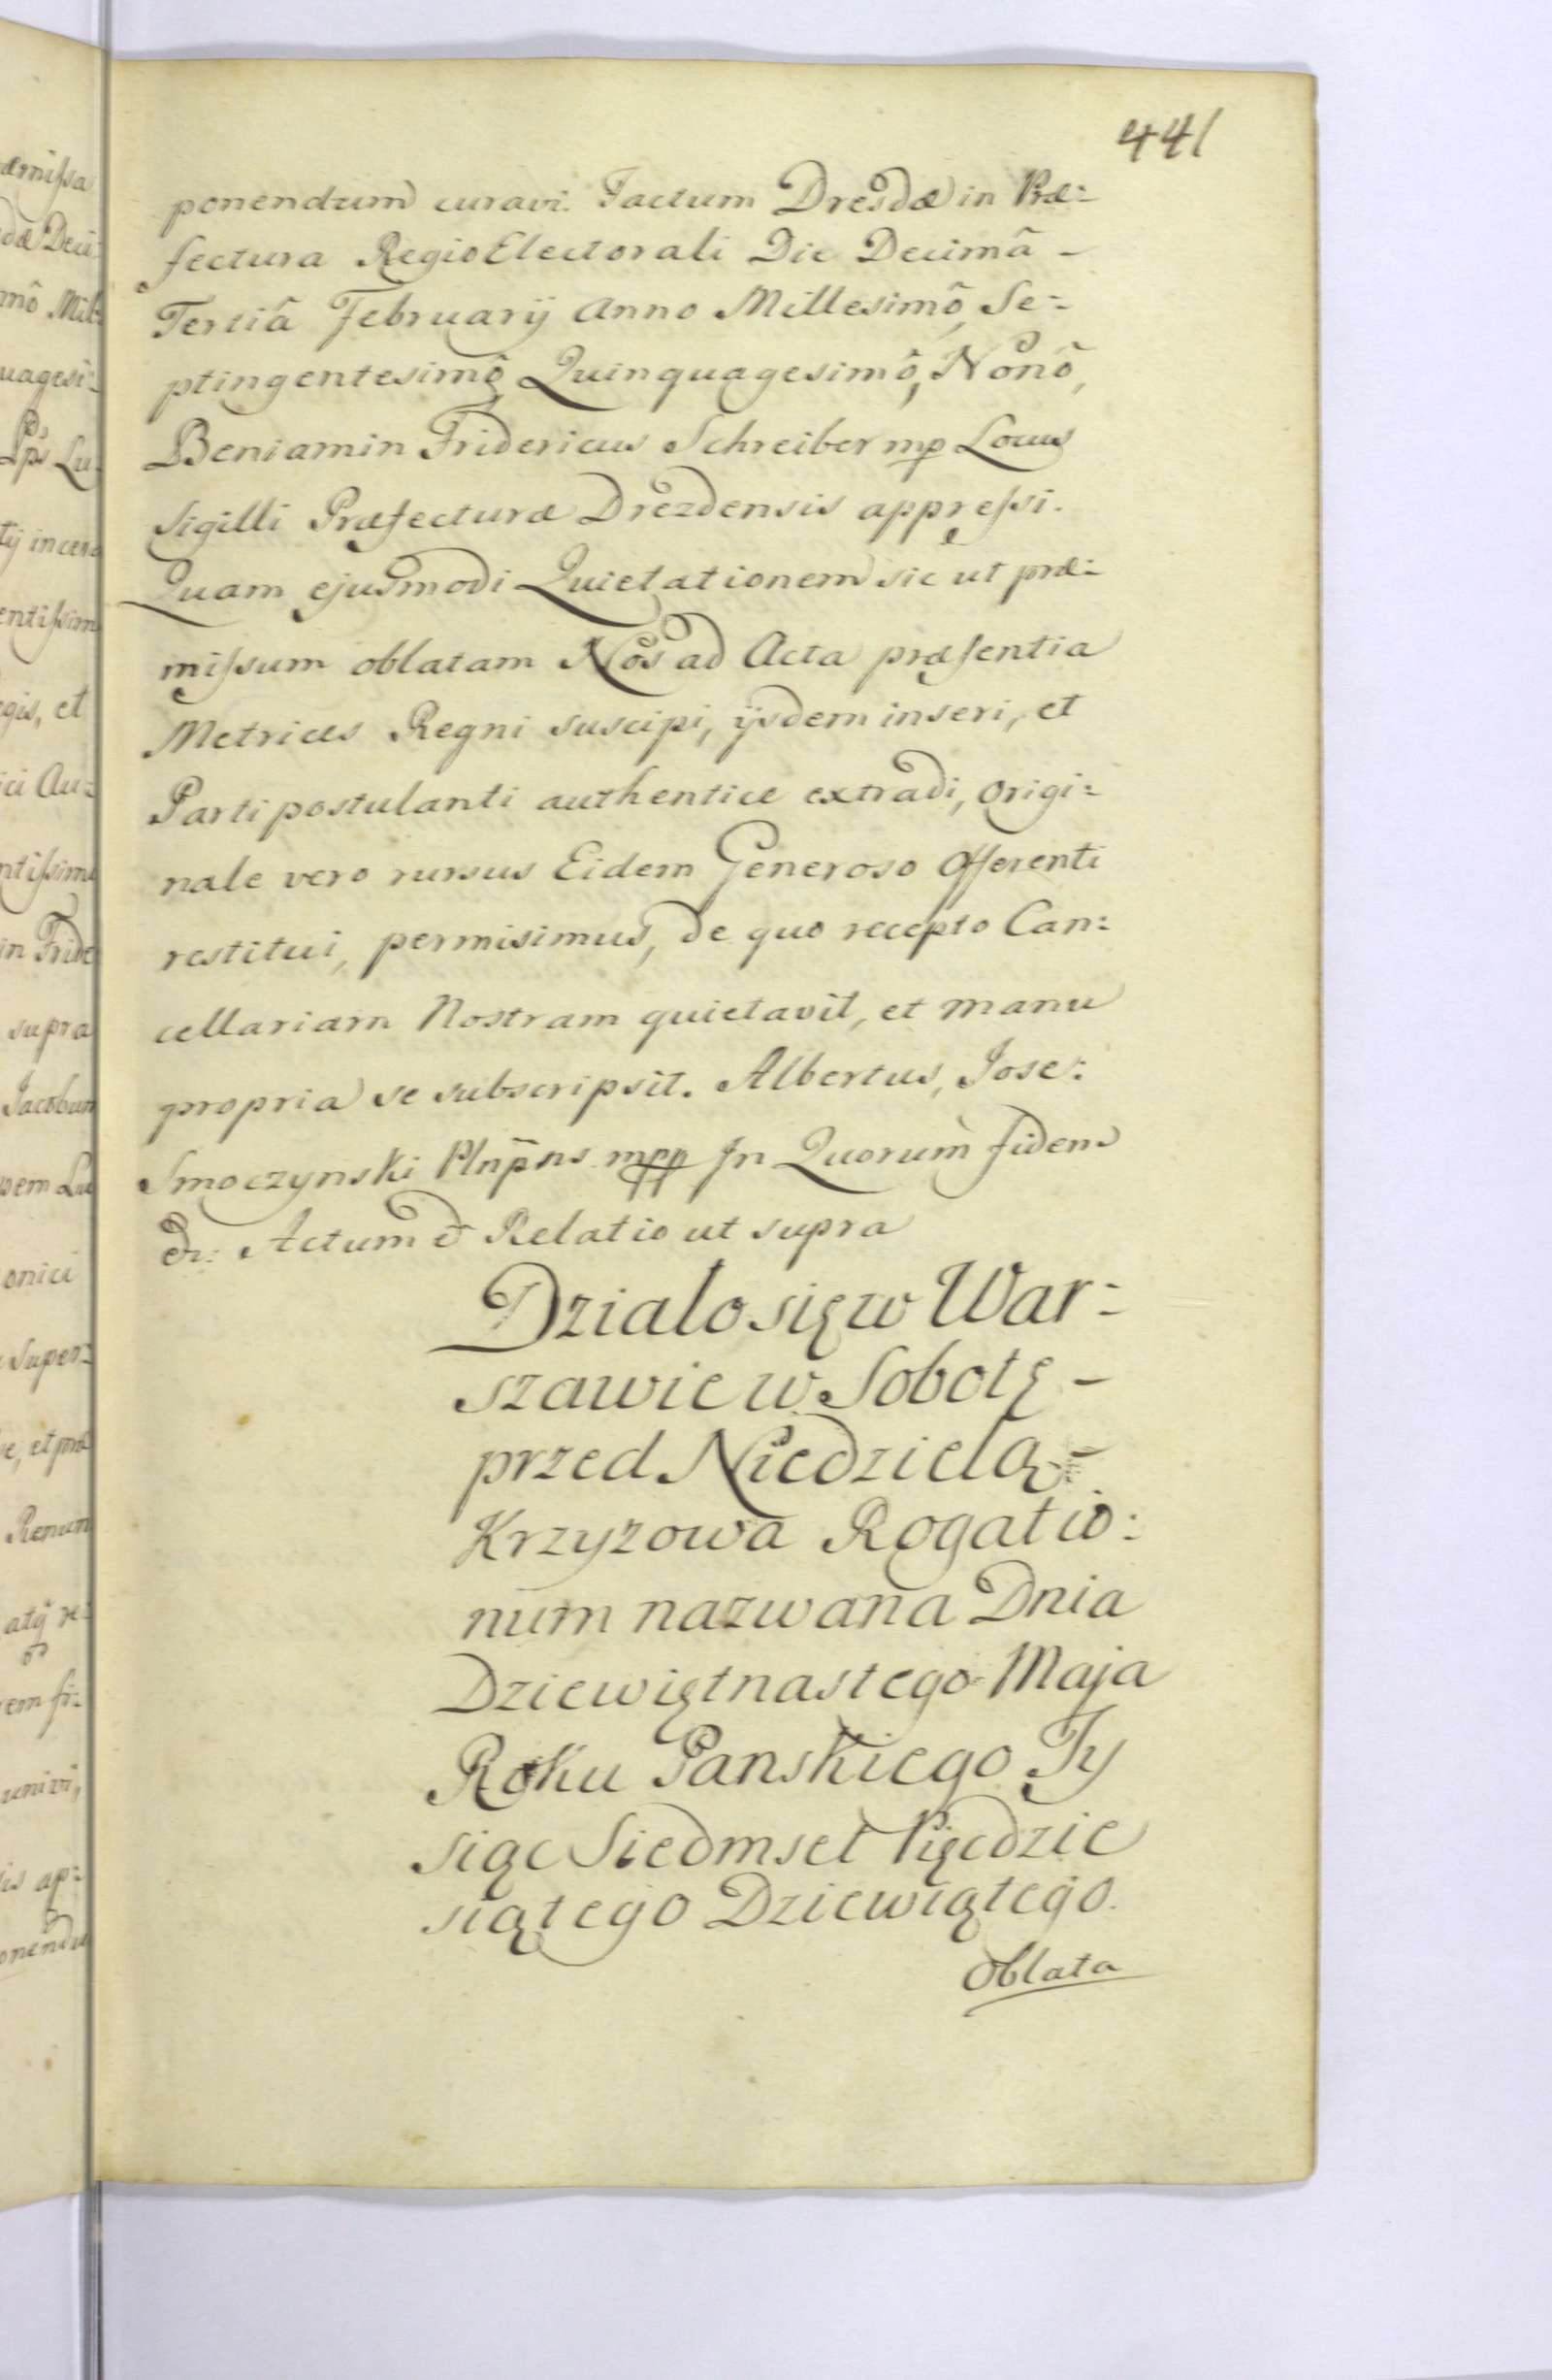 441
ponendum curavi. Factum Dresdæ in Præ:
fectura Regio Electorali Die Decimâ -
Tertiâ February Anno Millesimô, Se:
ptingentesimô, Quinquagesimô, Nonô,
Beniamin Fridericus Schreiber mp Locus
Sigilli Præfecturæ Drezdensis appreſsi.
Quam ejusmodi Quietationem sic ut præ:
miſsum oblatam Nos ad Acta præsentia
Metrices Regni suscipi, ijsdem inseri, et
Parti postulanti authentice extradi, origi:
nale vero rursus Eidem Generoso Offerenti
restitui, permisimus, de quo recepto Can:
cellariam Nostram quietavit, et manu
propria se subscripsit. Albertus, Jose:
Smoczynski Plnp̄ns mpp In Quorum fidem
&: Actum & Relatio ut supra
Dzialo się w War:
szawie w Sobotę -
przed Niedzielą -
Krzyzowa Rogatio:
num nazwana Dnia
Dziewiętnastego Maja
Roku Panskiego Ty
siąc Siedmset Pięcdzie
siątego Dziewiątego.
Oblata